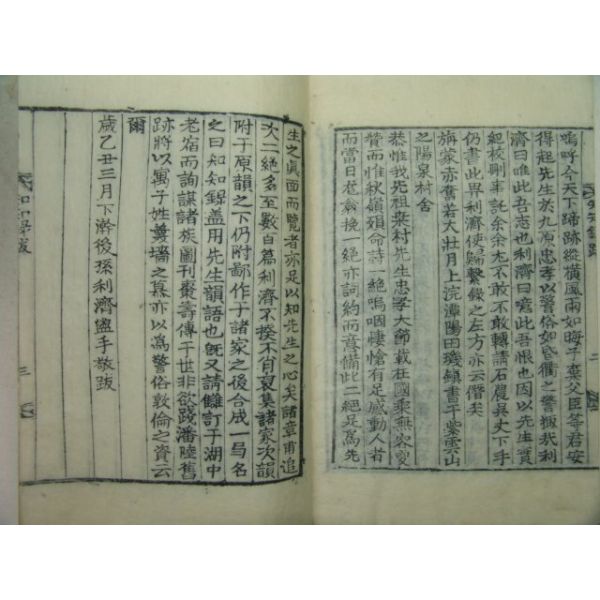 嗚呼今天下蹄跡縱橫風雨如晦子棄父臣等君安
得起先生於九原忠孝以警俗如昏衢之警撥我利
濟曰唯此吾志也利濟曰噫此吾恨也因以先生實
紀校刪事託余余尤不敢不敢轉請石農吳丈下手
仍書此畀利濟使歸繫錄之左方亦云僭矣
旃蒙赤奮若大壯月上浣潭陽田璣鎮書于紫雲山
之陽泉村舍
恭惟我先祖 村先生忠孝大節載在國乘無容 
贊而惟秋嶺殞命詩一絶嗚咽悽愴有足感動人者
而當日 翁挽一絶亦詞約而意備此二絶是爲先
生之眞面而覽者亦是以知先生之心矣諸章甫追
次二絶多至數百篇利濟不揆不肖裒集諸家次韻
附于原韻之下仍附鄙作于諸家之後合成一局名
之曰知知錄盖用先生韻語也旣又請讎訂于湖中
老宿而詢謀諸族圖刊棗壽傳于世非欲踐潘陸舊
跡將以寓子姓羹墻之慕亦以爲警俗敦倫之資云
爾
歲乙丑三月下澣後孫利濟盥手敬跋
知知錄跋
三
知知錄跋
二